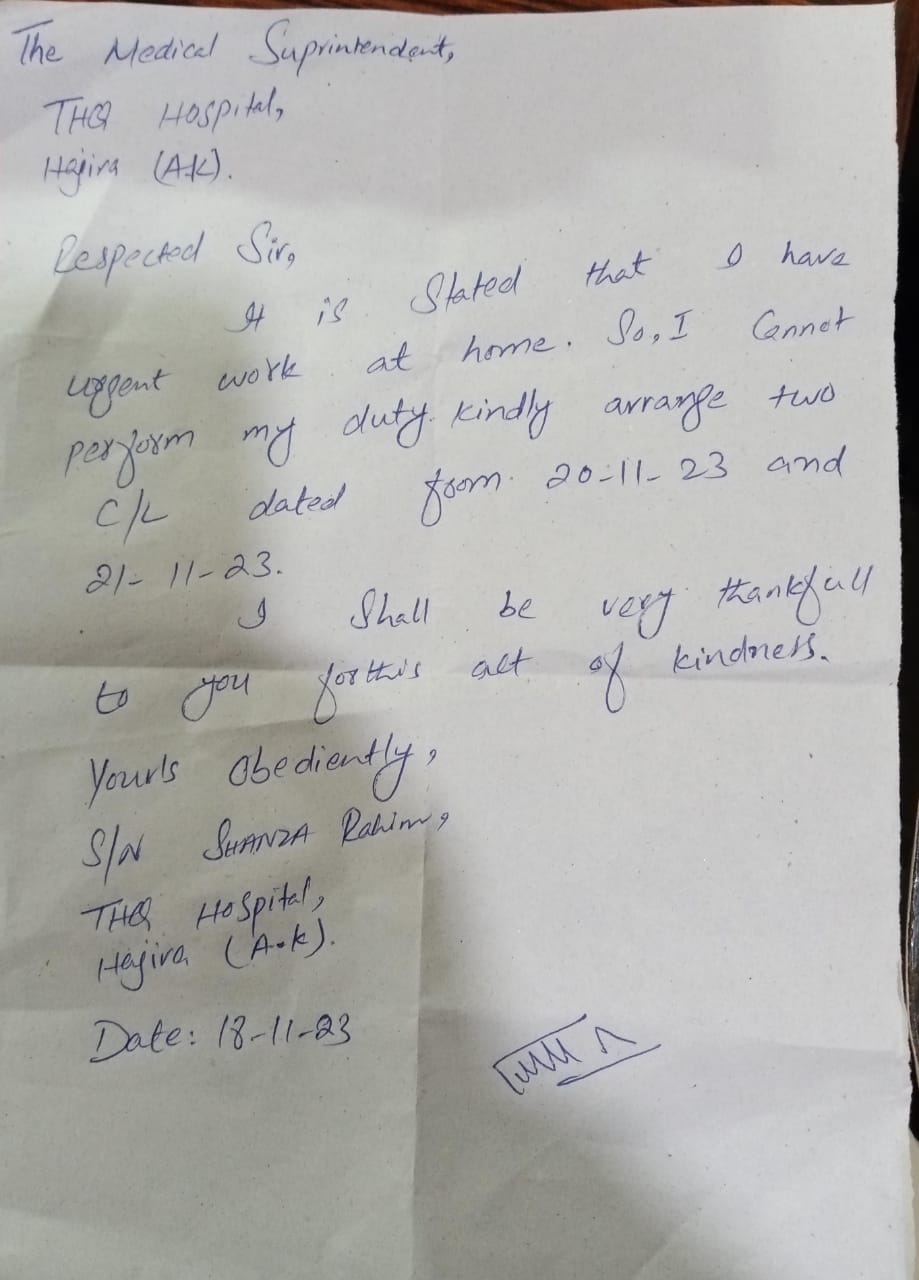 The Medical Suprintendent,
THQ Hospital,
Hajira (AK).
Respected Sir,
It is Stated that I have
urgent work at home. So, I Cannot
perform my duty. kindly arrange two
C/L dated from 20-11-23 and
21-11-23.
I Shall be very thankfull
to you for this act of kindness.
Yours Obediently,
S/N SHANZA Rahim,
THQ Hospital,
Hajira (A.k).
Date: 18-11-23